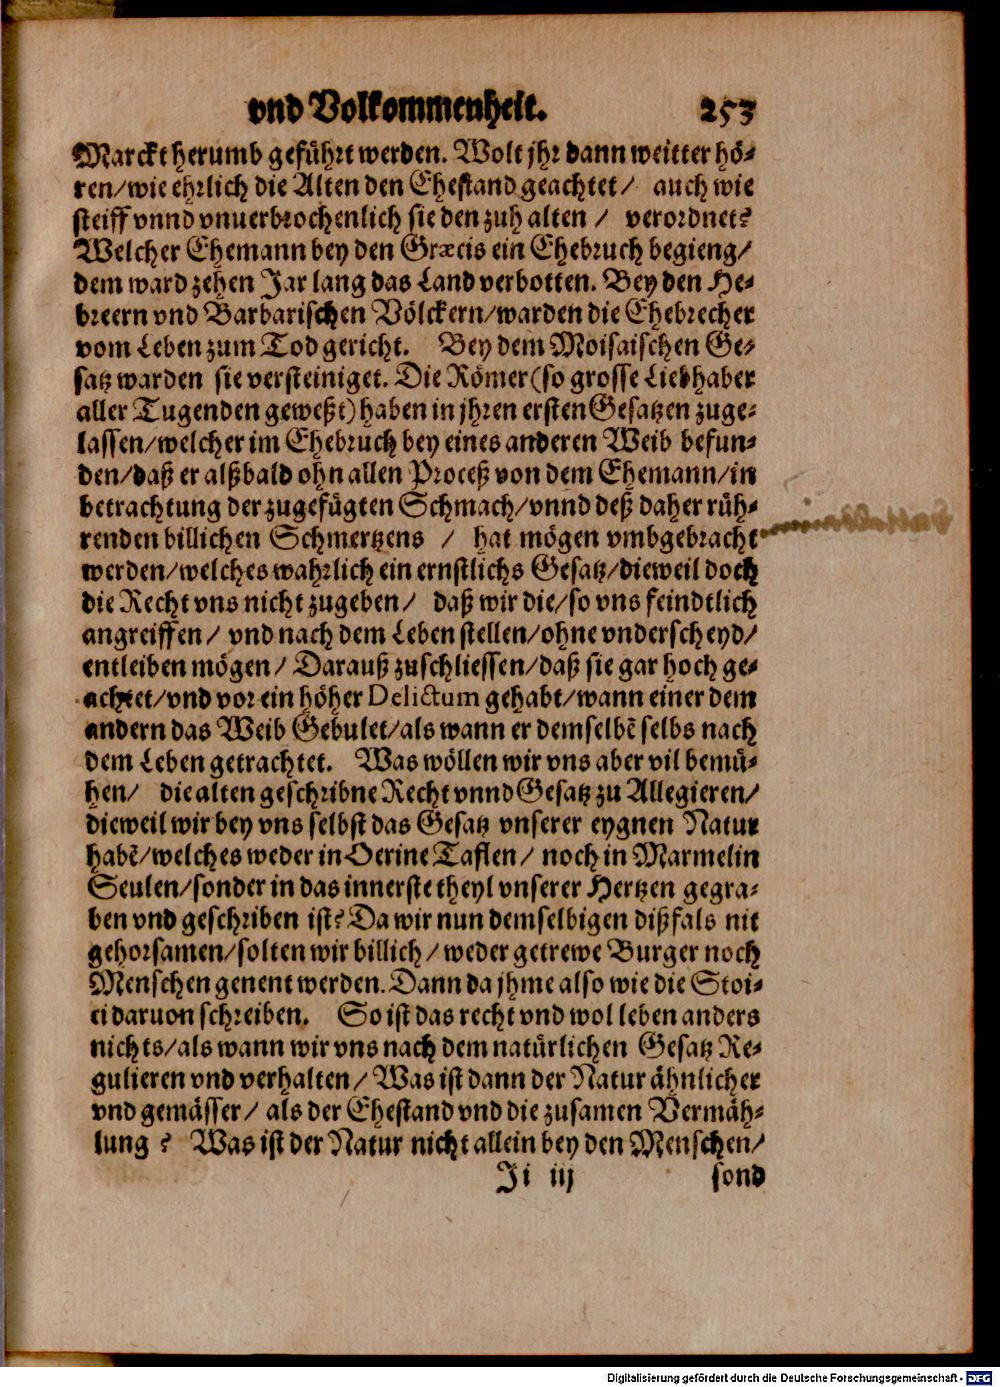 vnd Volkommenheit. 253
Marckt herumb geführt werden. Wolt jhr dann weitter hö-
ren/wie ehrlich die Alten den Ehestand geachtet/ auch wie
steiff vnnd vnuerbrochenlich sie den zuhalten / verordnet?
Welcher Ehemann bey den Græcis ein Ehebruch begieng/
dem ward zehen Jar lang das Land verbotten. Bey den He-
breern vnd Barbarischen Völckern/warden die Ehebrecher
vom Leben zum Tod gericht. Bey dem Moisaischen Ge-
satz warden sie versteiniget. Die Römer (so grosse Liebhaber
aller Tugenden geweßt) haben in jhren ersten Gesatzen zuge-
lassen/welcher im Ehebruch bey eines anderen Weib befun-
den/daß er alßbald ohn allen Proceß von dem Ehemann/in
betrachtung der zugefügten Schmach/vnnd deß daher rüh-
renden billichen Schmertzens / hat mögen vmbgebracht
werden/welches wahrlich ein ernstlichs Gesatz/dieweil doch
die Recht vns nicht zugeben/ daß wir die/so vns feindtlich
angreiffen/ vnd nach dem Leben stellen/ohne vnderscheyd/
entleiben mögen/ Darauß zuschliessen/daß sie gar hoch ge-
achtet/vnd vor ein höher Delictum gehabt/wann einer dem
andern das Weib Gebulet/als wann er demselbẽ selbs nach
dem Leben getrachtet. Was wöllen wir vns aber vil bemü-
hen/ die alten geschribne Recht vnnd Gesatz zu Allegieren/
dieweil wir bey vns selbst das Gesatz vnserer eygnen Natur
habẽ/welches weder in Oerine Taflen/ noch in Marmelin
Seulen/sonder in das innerste theyl vnserer Hertzen gegra-
ben vnd geschriben ist? Da wir nun demselbigen dißfals nit
gehorsamen/solten wir billich/ weder getrewe Burger noch
Menschen genent werden. Dann da jhme also wie die Stoi-
ci daruon schreiben. So ist das recht vnd wol leben anders
nichts/als wann wir vns nach dem natürlichen Gesatz Re-
gulieren vnd verhalten/ Was ist dann der Natur ähnlicher
vnd gemässer/ als der Ehestand vnd die zusamen Vermäh-
lung ? Was ist der Natur nicht allein bey den Menschen/
Ji iij sond
Digitalisierung gefördert durch die Deutsche Forschungsgemeinschaft - DFG